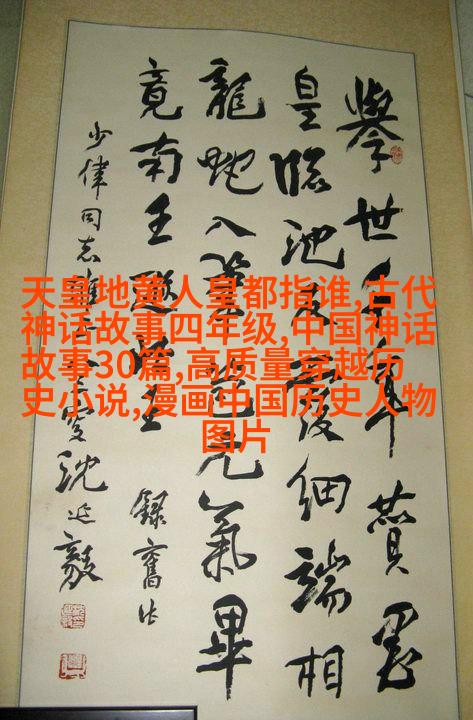 天皇地黄人皇都指谁,古代
神话故事四年级,中国神话
故事30篇,高质量穿越历
史小说,漫画中国历史人物
图片
舉世千年贊墨
皇臨池細端相
龍蛇入元氣畢
竟南王王 錄舊作
少偉同志雅 沈延毅